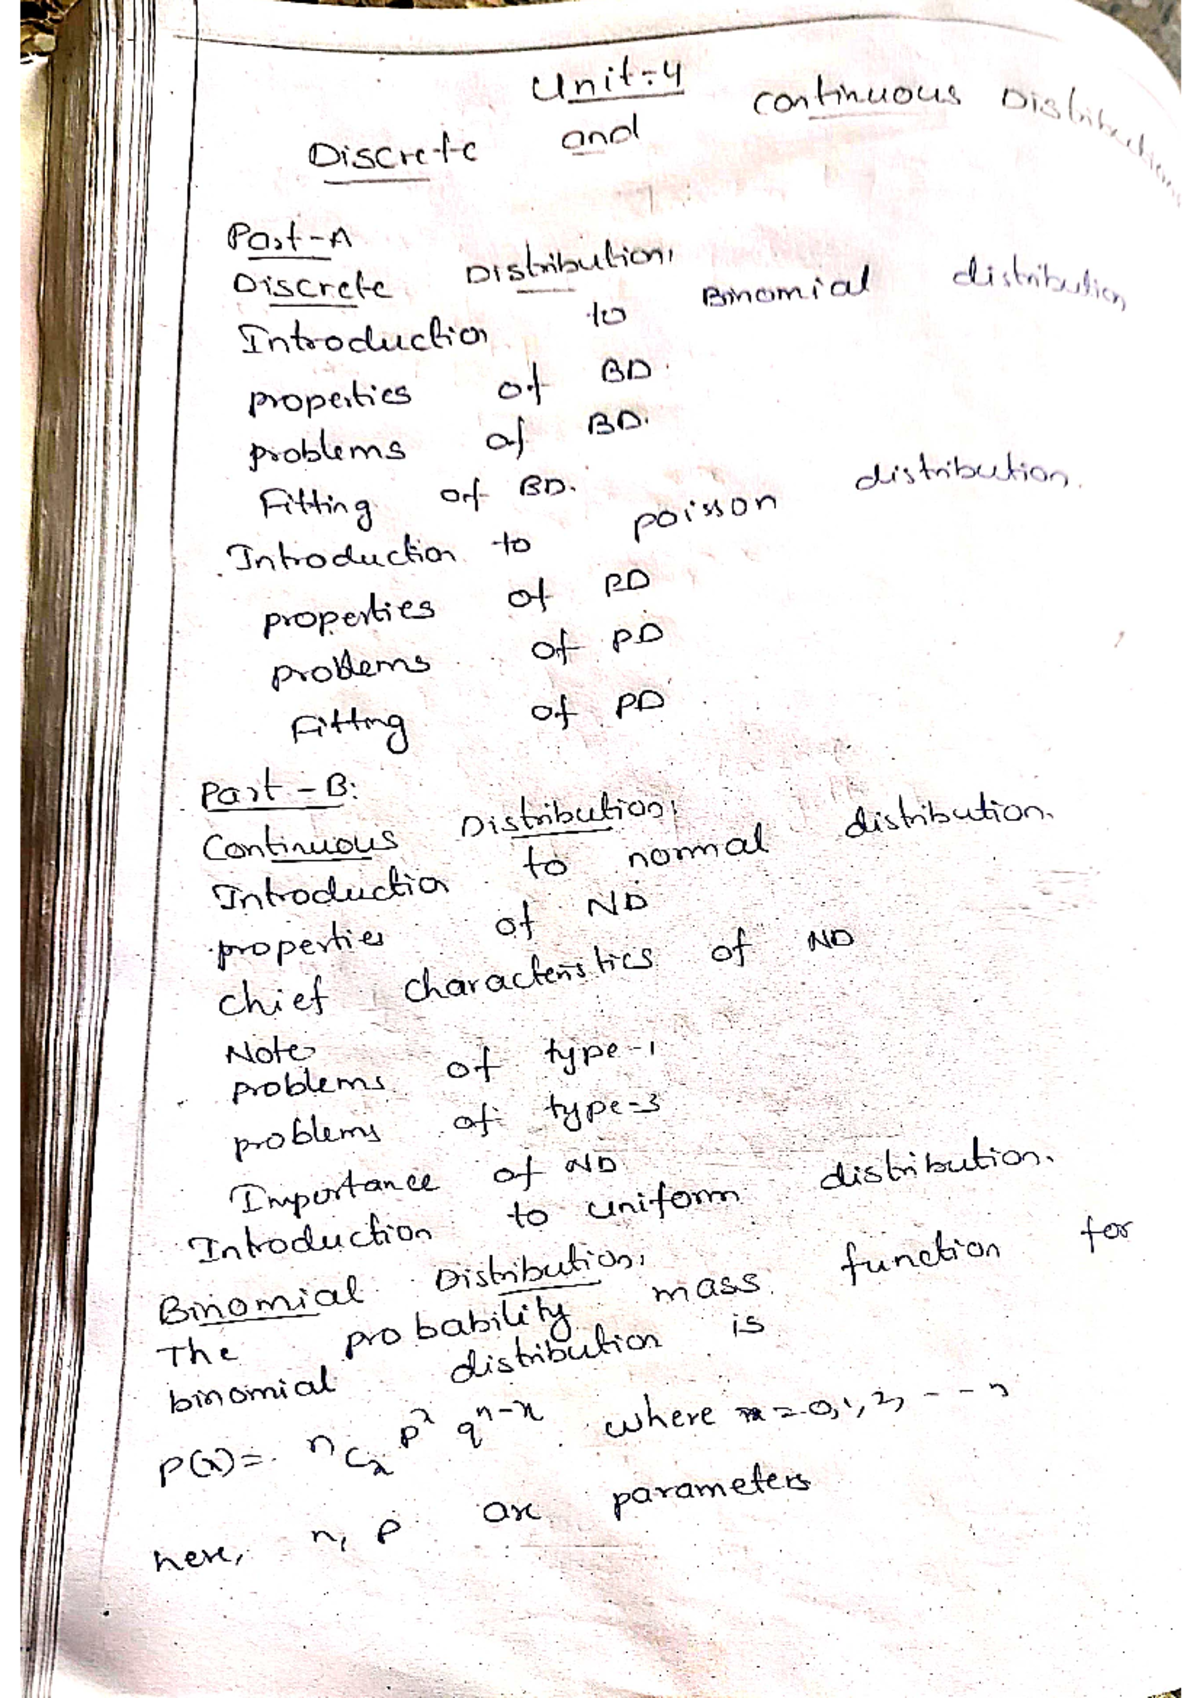 Unit:-4
Discrete and continuous Distributions
Part-A
Discrete Distribution:
Introduction to Binomial distribution
properties of BD.
problems of BD.
Fitting of BD.
Introduction to poisson distribution.
properties of PD
problems of PD
Fitting of PD
Part-B:
Continuous Distribution:
Introduction to normal distribution.
properties of ND
chief characteristics of ND
Note
problems of type-1
problems of type-3
Importance of ND
Introduction to uniform distribution.
Binomial Distribution:
The probability mass function for
binomial distribution is
P(x) = nCx p^x q^n-x where x=0,1,2,---n
here, n, p are parameters